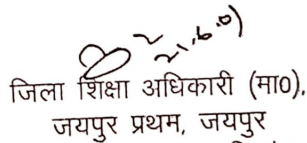 जिला शिक्षा अधिकारी (मा0),
जयपुर प्रथम, जयपुर